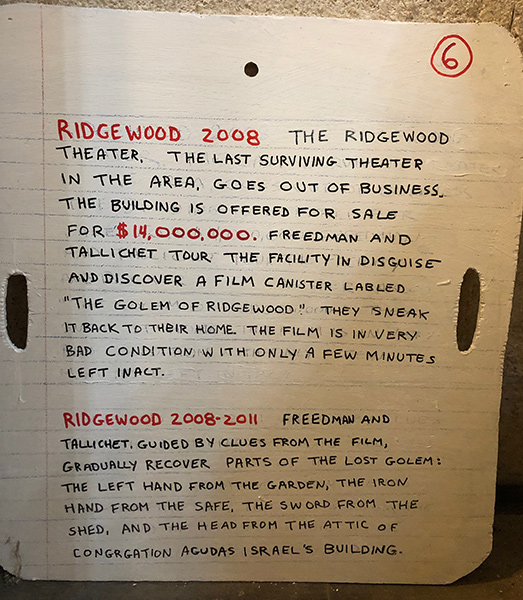 6
RIDGEWOOD 2008 THE RIDGEWOOD
THEATER, THE LAST SURVIVING THEATER
IN THE AREA, GOES OUT OF BUSINESS.
THE BUILDING IS OFFERED FOR SALE
FOR $14,000,000. FREEDMAN AND
TALLICHET TOUR THE FACILITY IN DISGUISE
AND DISCOVER A FILM CANISTER LABLED
"THE GOLEM OF RIDGEWOOD". THEY SNEAK
IT BACK TO THEIR HOME. THE FILM IS IN VERY
BAD CONDITION, WITH ONLY A FEW MINUTES
LEFT INACT.
RIDGEWOOD 2008-2011 FREEDMAN AND
TALLICHET, GUIDED BY CLUES FROM THE FILM,
GRADUALLY RECOVER PARTS OF THE LOST GOLEM:
THE LEFT HAND FROM THE GARDEN, THE IRON
HAND FROM THE SAFE, THE SWORD FROM THE
SHED, AND THE HEAD FROM THE ATTIC OF
CONGRGATION AGUDAS ISRAEL'S BUILDING.